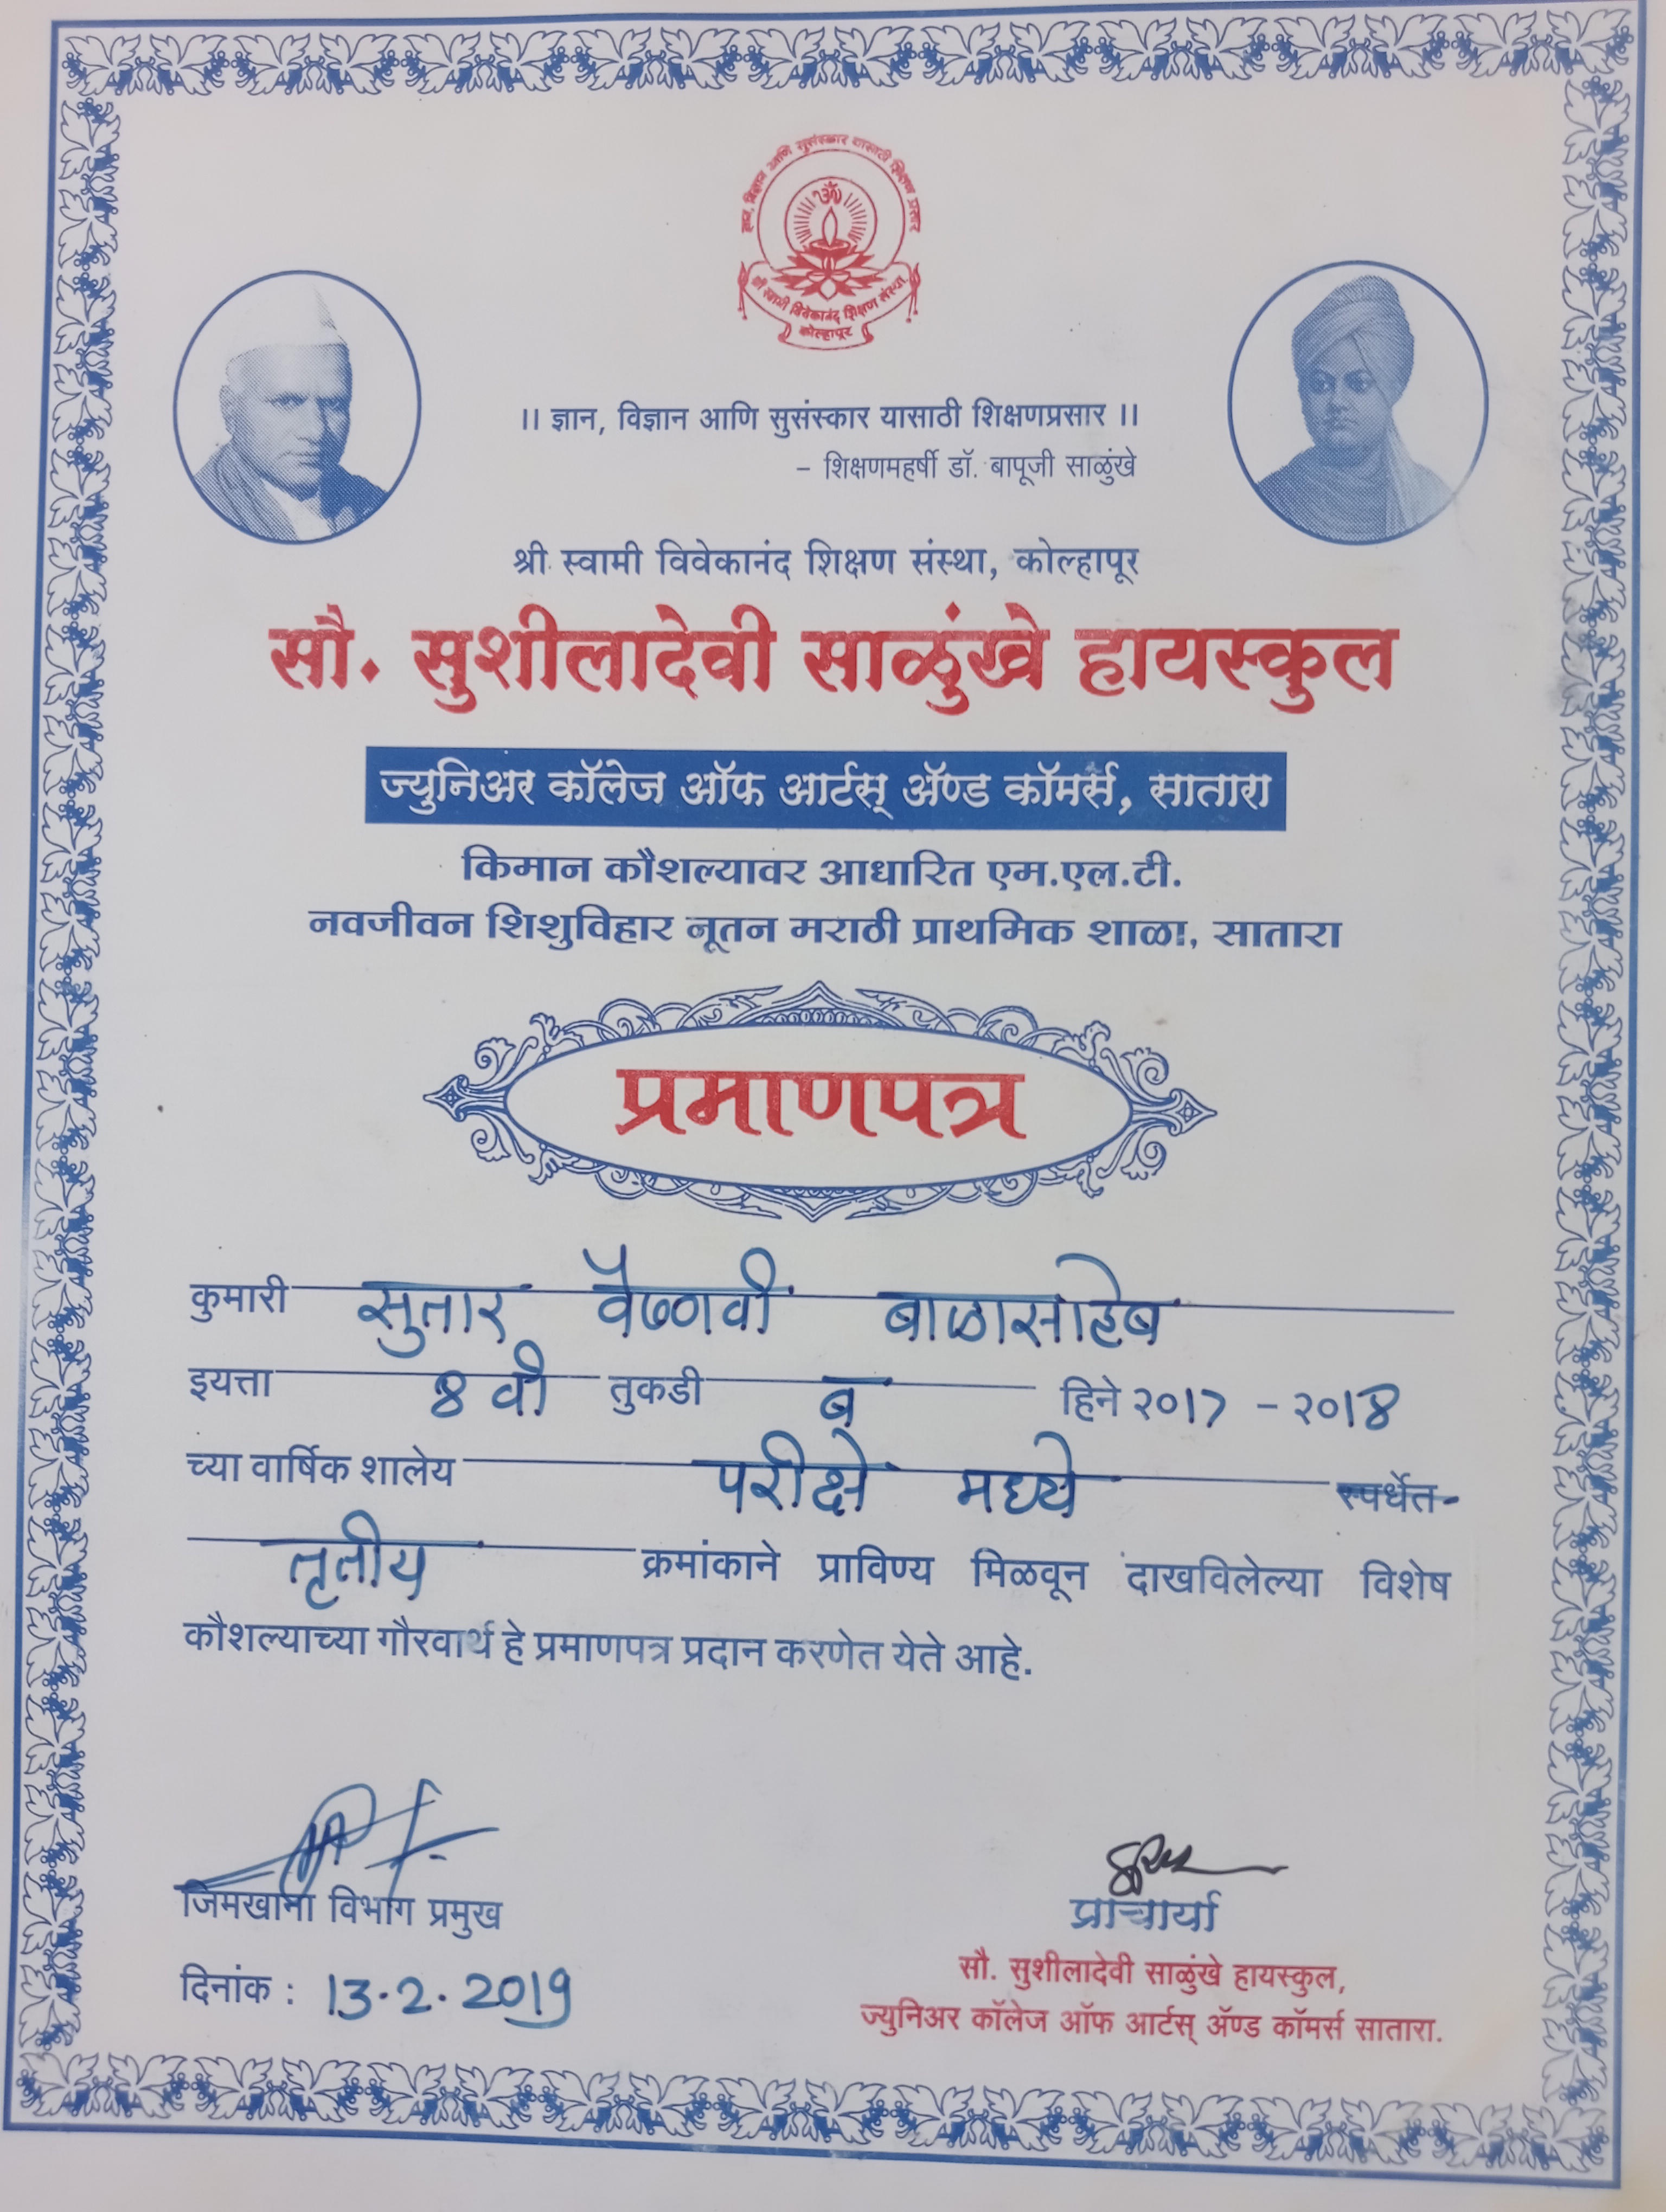 ज्ञान, विज्ञान आणि सुसंस्कार यासाठी शिक्षण प्रसार
ॐ
श्री स्वामी विवेकानंद शिक्षण संस्था,
कोल्हापूर
॥ ज्ञान, विज्ञान आणि सुसंस्कार यासाठी शिक्षणप्रसार ॥
– शिक्षणमहर्षी डॉ. बापूजी साळुंखे
श्री स्वामी विवेकानंद शिक्षण संस्था, कोल्हापूर
सौ. सुशीलादेवी साळुंखे हायस्कुल
ज्युनिअर कॉलेज ऑफ आर्टस् ॲण्ड कॉमर्स, सातारा
किमान कौशल्यावर आधारित एम.एल.टी.
नवजीवन शिशुविहार नूतन मराठी प्राथमिक शाळा, सातारा
प्रमाणपत्र
कुमारी सुतार वैष्णवी बाळासाहेब
इयत्ता 8 वी तुकडी ब हिने २०17 – २०18
च्या वार्षिक शालेय परीक्षे मध्ये स्पर्धेत
तृतीय क्रमांकाने प्राविण्य मिळवून दाखविलेल्या विशेष
कौशल्याच्या गौरवार्थ हे प्रमाणपत्र प्रदान करणेत येते आहे.
जिमखाना विभाग प्रमुख
प्राचार्या
दिनांक : 13.2.2019
सौ. सुशीलादेवी साळुंखे हायस्कुल,
ज्युनिअर कॉलेज ऑफ आर्टस् ॲण्ड कॉमर्स सातारा.